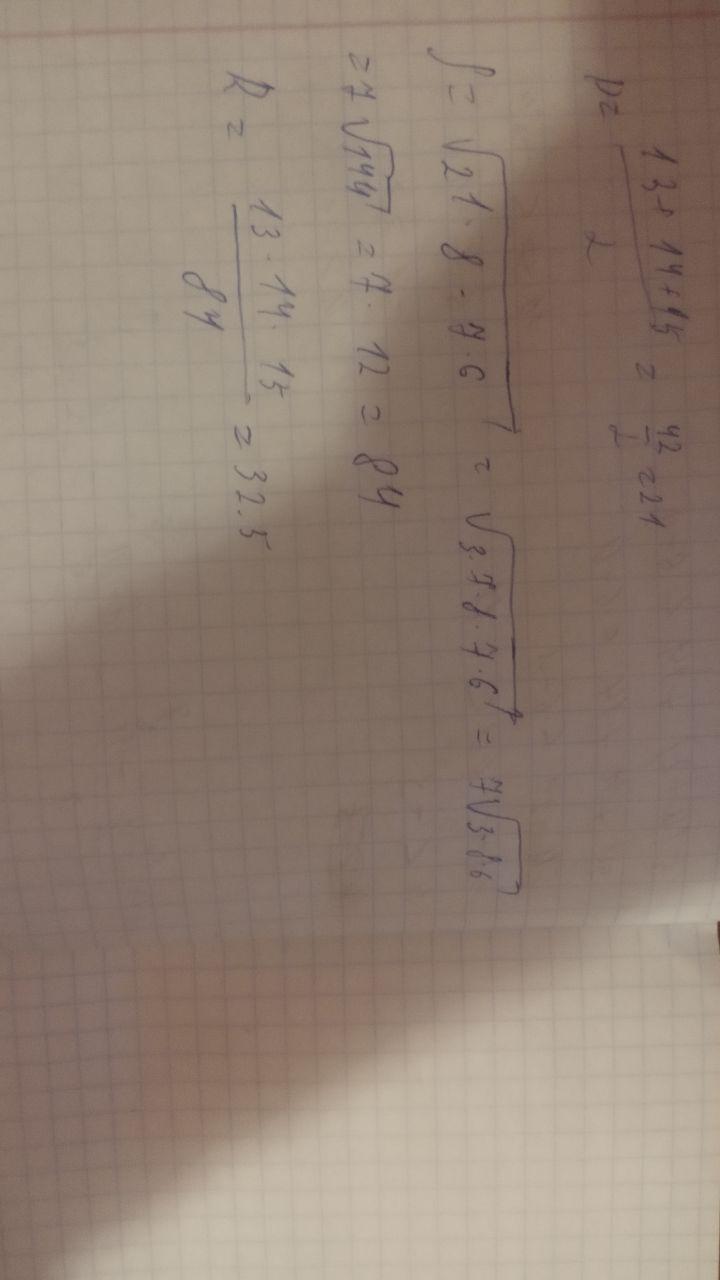 p = (13 + 14 + 15)/2 = 42/2 = 21
S = √(21 · 8 · 7 · 6) = √(3 · 7 · 8 · 7 · 6) = 7√(3 · 8 · 6)
= 7√144 = 7 · 12 = 84
R = (13 · 14 · 15)/84 = 32.5